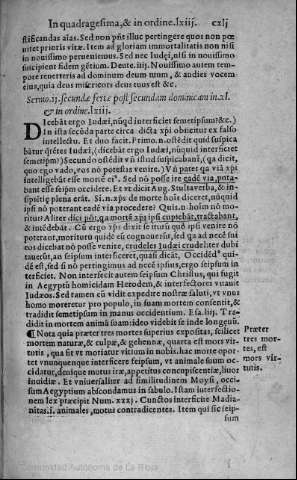 In quadragesima, & in ordine. lxiij. cxlj
stificandas aīas. Sed non pn̄t illuc pertingere quos non pœ
nitet prioris vitæ. Item ad gloriam immortalitatis non nisi
in nouissimo perueniemus. Sed nec Iudęi, nisi in nouissimo
suscipient fidem gētium. Deute. iiij. Nouissimo autem tem-
pore reuerteris ad dominum deum tuum, & audies vocem
eius, quia deus misericors deus tuus est &c.
Sermo. ij. secundæ feriæ post secundam dominicam in. xl.
& in ordine. lxiij.
Dicebāt ergo Iudæi, nūqd interficiet semetipsum? &c.)
In ista secūda parte circa dicta xp̄i obijcitur ex falso
intellectu. Et duo facit. Primo. n. ostēdit quid suspica
bātur q̄rētes Iudæi, (dicebāt ergo Iudæi, nunquid interficiet
semetipm?) Secundo ostēdit vn̄ istud suspicabant, (qa dicit,
quo ego vado, vos nō potestis venire.) Vn̄ patet qa viā xp̄i
intelligebāt esse mortē ei⁹. Sed nō posse ire eadē via, puta-
bant esse seipm occidere. Et vt dicit Aug. Stulta verba, & in-
sipiētię plena erāt. Si. n. xp̄s de morte hoīs diceret, nūquid
ipsi nō poterant eadē via procedere? Quis. n. homin nō mo-
ritur? Aliter dici pōt, qa mortē xp̄i ipsi cupiebāt, tractabant,
& incēdebāt. Cū ergo xp̄s dixit se iturū quò ipsi venire nō
poterant, morituri quidē eū cognouerūt, sed qa ad necē sui
eos dicebat nō posse venire, crudeles Iudæi crudeliter dubi
tauerūt, an seipsum interficeret, quasi dicāt, Occidēd⁹ qui-
dē est, sed si nō pertingimus ad necē ipsius, ergo seipsum in
terficiet. Non interfecit autem seipsum Christus, qui fugit
in Aegyptū homicidam Herodem, & interfectores vitauit
Iudæos. Sed tamen cū vidit expedire nostræ saluti, vt vnus
homo moreretur pro populo, in suam mortem consentit, &
tradidit semetipsum in manus occidentium. Esa. liij. Tra-
didit in mortem animā suam: ideo videbit semē longęuū.
¶ Nota quia præter tres mortes superius expositas, scilicet
mortem naturæ, & culpæ, & gehennæ, quarta est mors vir-
tutis, qua fit vt moriatur vitium in nobis. hac morte opor-
tet vnumquenque interficere seipsum, vt animale suum oc-
cidatur, denique motus iræ, appetitus concupiscentiæ, liuor
inuidiæ. Et vniuersaliter ad similitudinem Moysi, occi-
sum Aegyptium abscondamus in sabulo. Istam interfectio-
nem lex præcipit Num. xxxj. Cunctos interficite Madia-
nitas. i. animales, motus contradicentes. Item qui sic seip-
sum
Præter
tres mor-
tes, est
mors vir-
tutis.